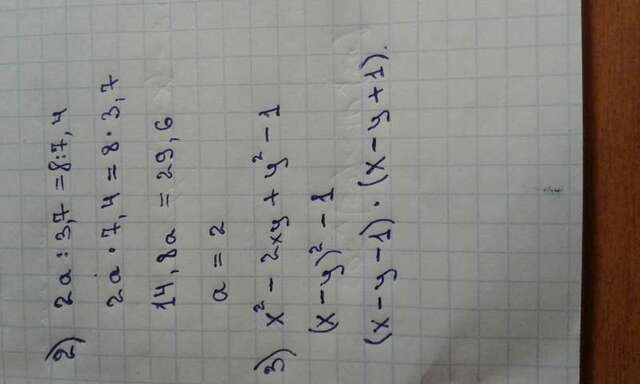 2) 2a : 3,7 = 8 : 7,4
2a · 7,4 = 8 · 3,7
14,8a = 29,6
a = 2
3) x² - 2xy + y² - 1
(x - y)² - 1
(x - y - 1) · (x - y + 1).